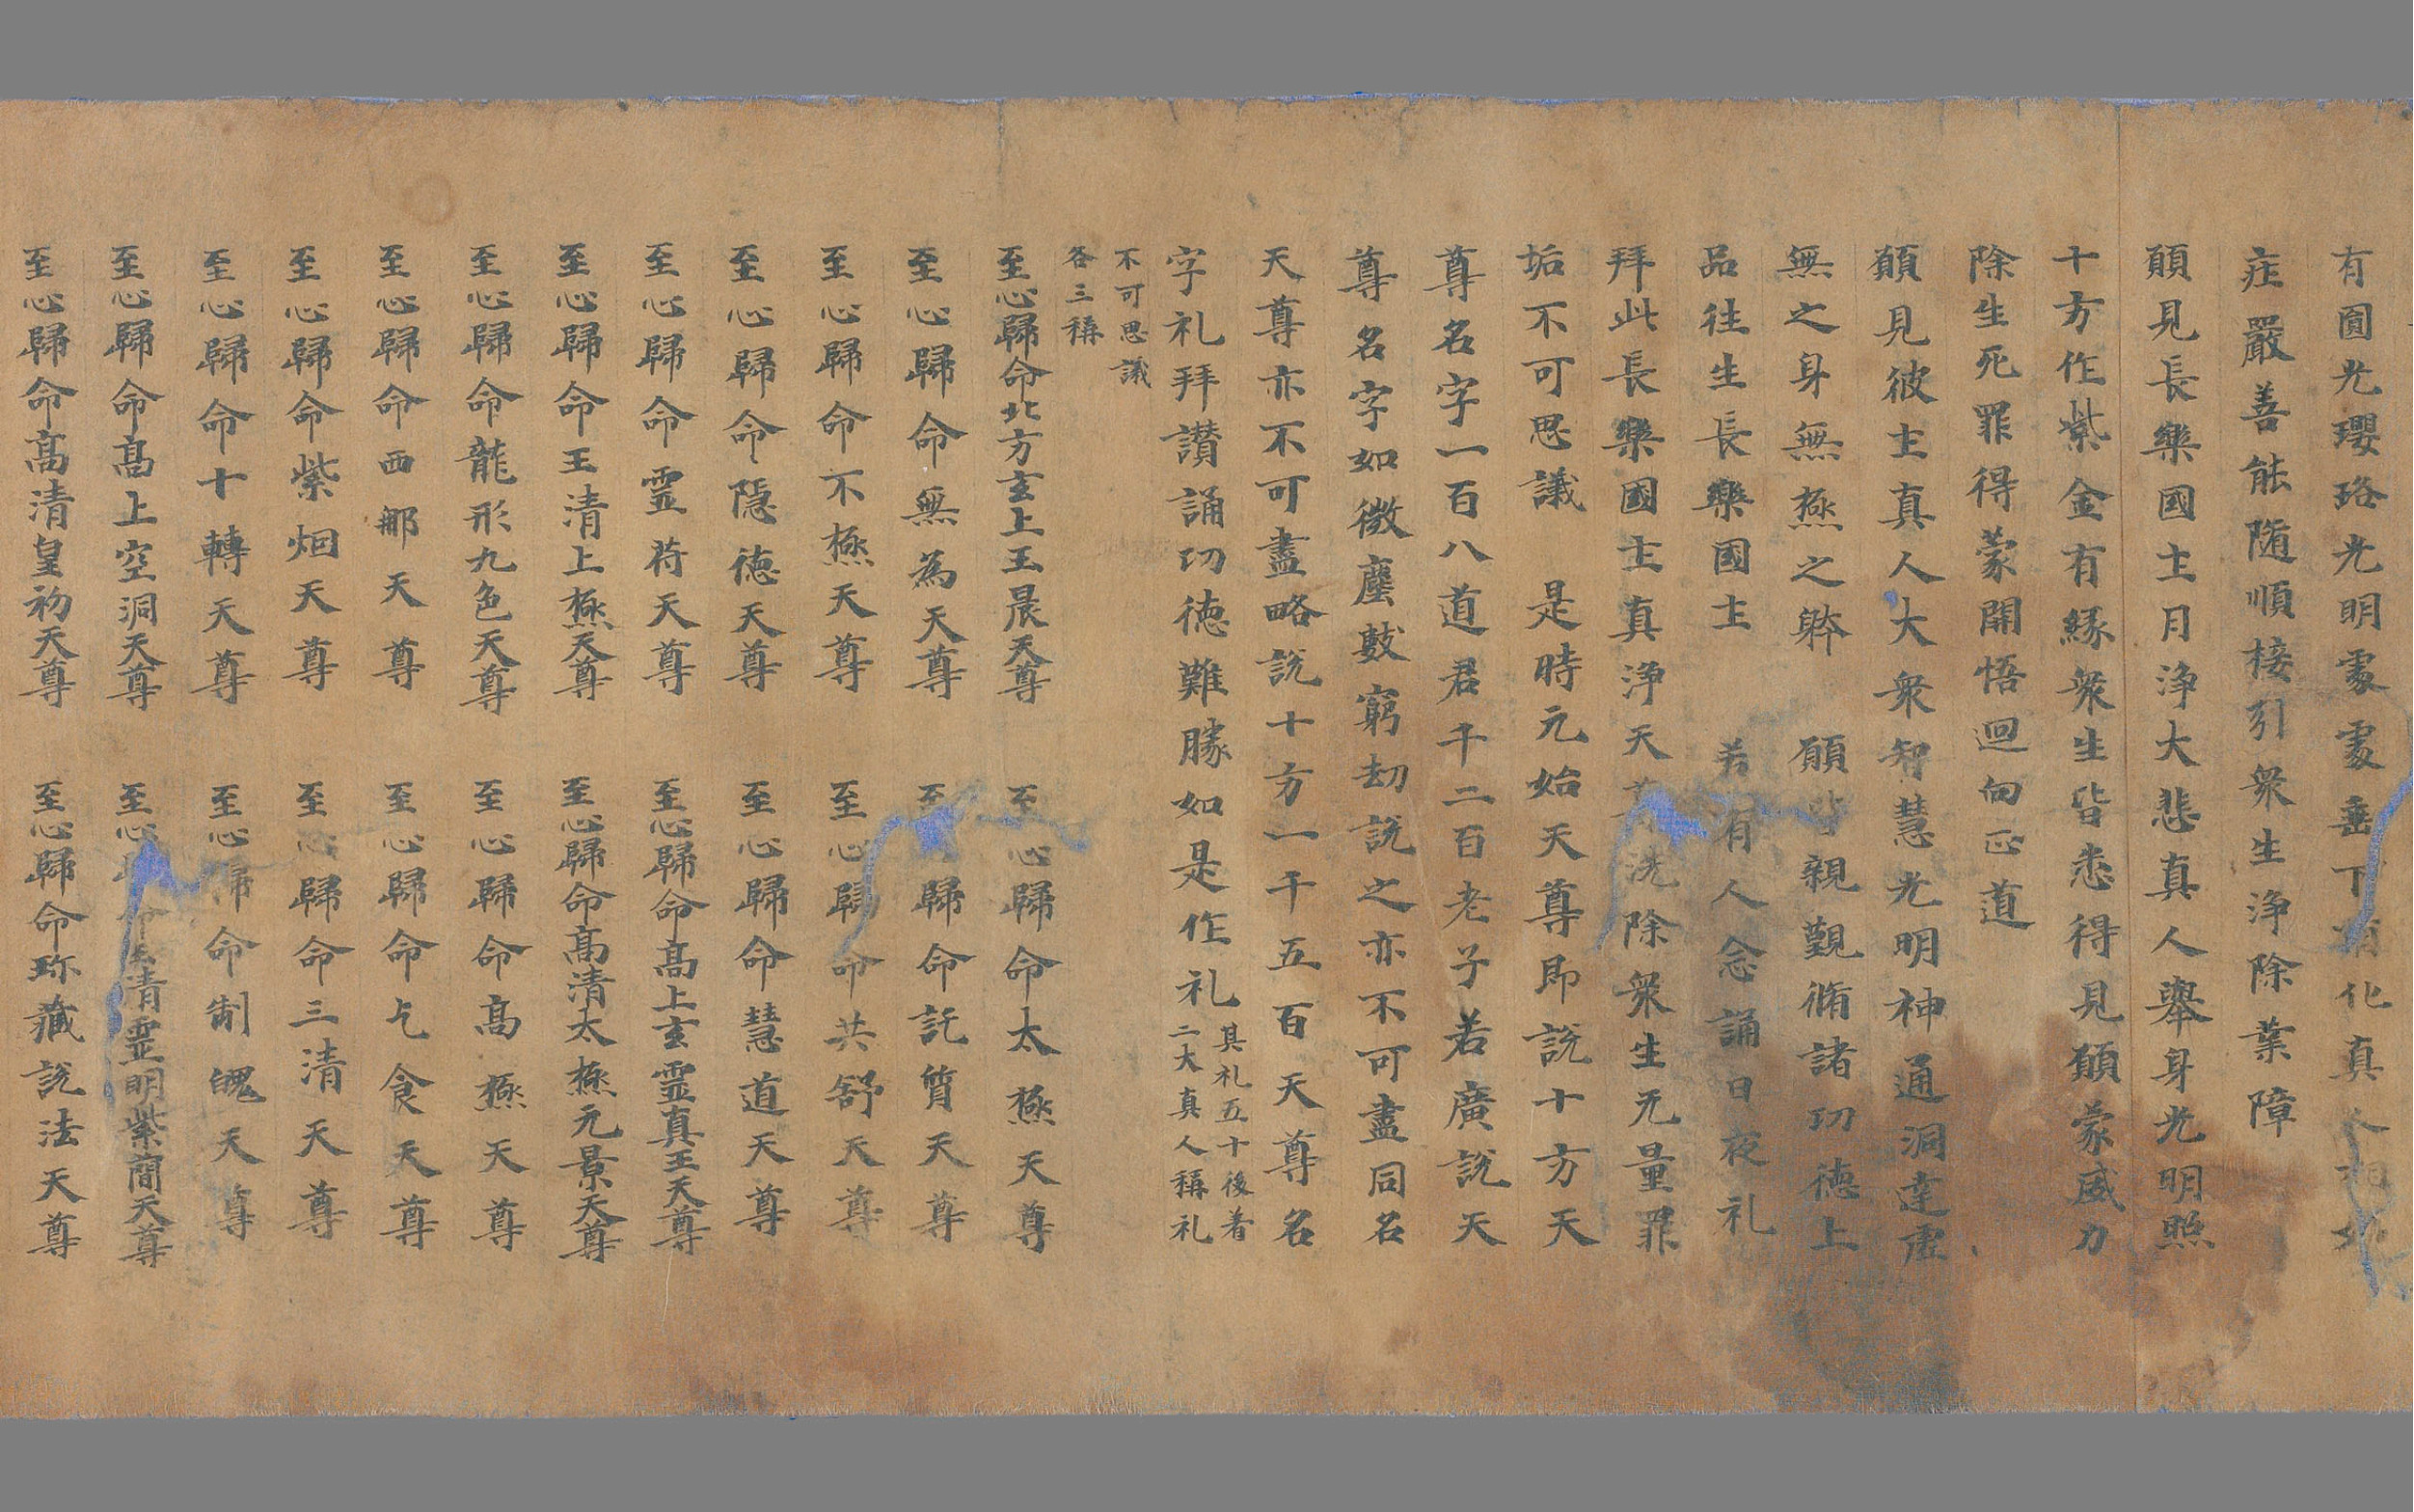 有圓光瓔珞光明處處垂下有化真人
庄嚴善能隨順接引衆生浄除業障
願見長樂國土月浄大悲真人舉身光明照
十方作紫金有緣衆生皆悉得見願蒙威力
除生死罪得蒙開悟迴向正道
願見彼土真人大衆智慧光明神通洞達虛
無之身無極之躰 願皆親覲脩諸功德上
品往生長樂國土 若有人念誦日夜礼
拜此長樂國土真浄天尊洗除衆生无量罪
垢不可思議 是時元始天尊即說十方天
尊名字一百八道君千二百老子若廣說天
尊名字如微塵數窮劫說之亦不可盡同名
天尊亦不可盡略說十方一千五百天尊名
字礼拜讃誦功德難勝如是作礼 其礼五十後着
二大真人稱礼
不可思議
各三稱
至心歸命北方玄上玉晨天尊 至心歸命太極天尊
至心歸命無為天尊 至心歸命託質天尊
至心歸命不極天尊 至心歸命共舒天尊
至心歸命隱德天尊 至心歸命慧道天尊
至心歸命靈苻天尊 至心歸命高上玄靈真王天尊
至心歸命玉清上極天尊 至心歸命高清太極元景天尊
至心歸命龍形九色天尊 至心歸命高極天尊
至心歸命西那天尊 至心歸命乞食天尊
至心歸命紫烟天尊 至心歸命三清天尊
至心歸命十轉天尊 至心歸命制魄天尊
至心歸命高上空洞天尊 至心歸命清靈明紫蕳天尊
至心歸命高清皇初天尊 至心歸命珎藏說法天尊